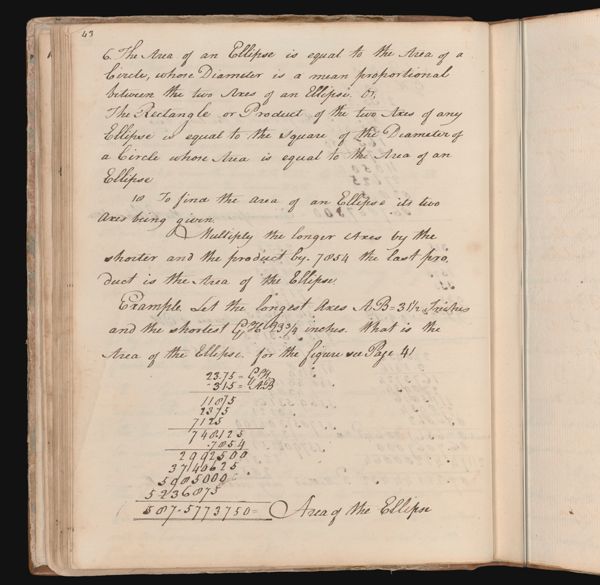 43
6. The Area of an Ellipse is equal to the Area of a
Circle, whose Diameter is a mean proportional
between the two Axes of an Ellipsis. Or,
The Rectangle or Product of the two Axes of any
Ellipse is equal to the Square of the Diameter of
a Circle whose Area is equal to the Area of an
Ellipse
To find the area of an Ellipse its two
Axes being given.
Multiply the longer Axes by the
shorter and the product by .7854 the last pro
duct is the Area of the Ellipse
Example. Let the longest Axes AB = 31 1/2 Inches
and the shortest GH 23 3/4 inches. What is the
Area of the Ellipse. for the figure see Page 41
23.75 = GH
315 = AB
11875
2375
7125
748125
.7854
2992500
3740625
5985000
5236875
587.5773750 = Area of the Ellipse